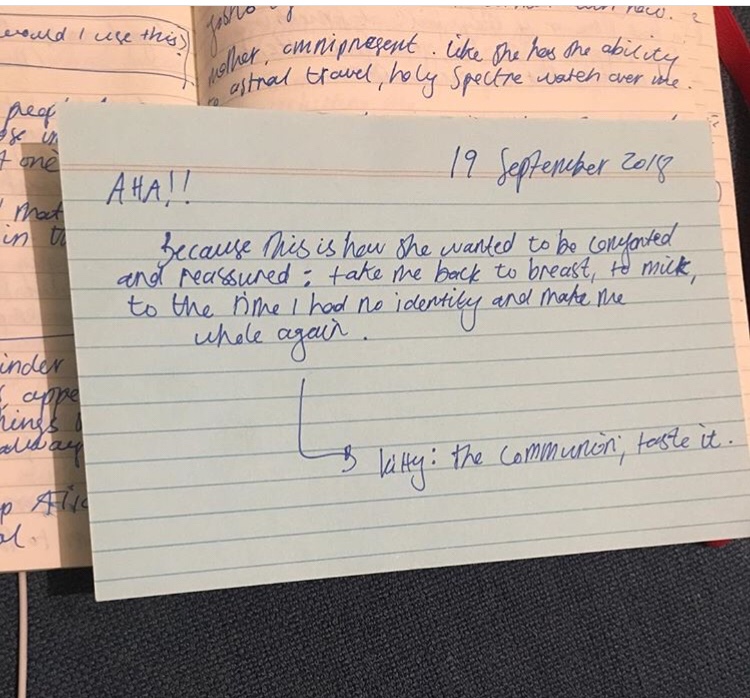 would I use this)
mother, omnipresent. like she has the ability
astral travel, holy spectre watch over me.
one
in
19 September 2018
AHA!!
Because this is how she wanted to be comforted
and reassured : take me back to breast, to milk,
to the time I had no identity and make me
whole again.
kitty: the communion, taste it.